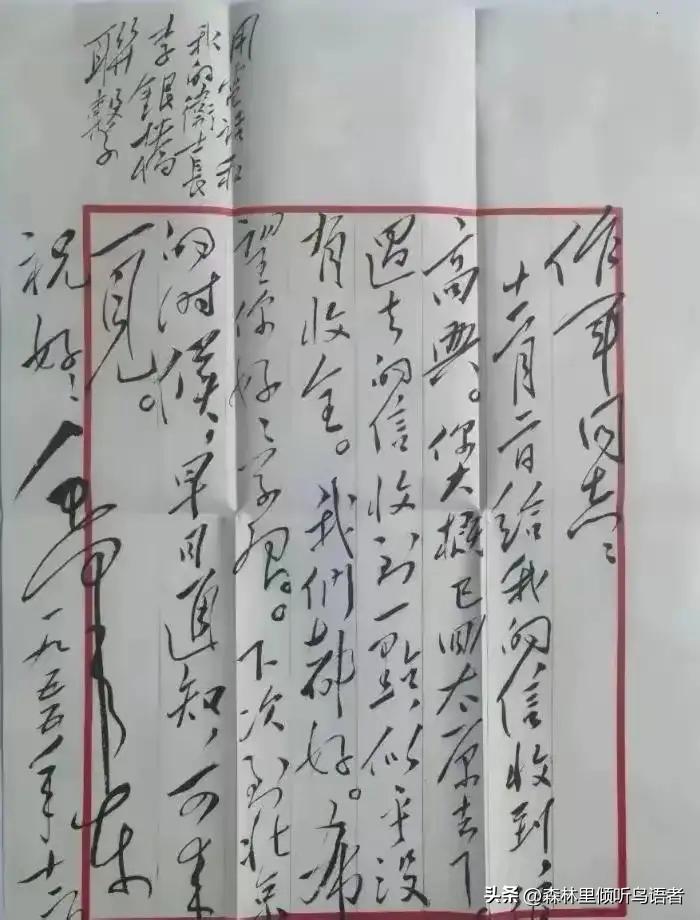 作軍同志：
給我的信收到，
高興。你大概已回太原去了
過去的信收到一點，似乎没
有收全。我們都好。希
望你好好学習。下次到北京
的时候，早日通知，可来
一見。
用電話和
我的衛士長
李銀橋
聯繫
祝好！
毛澤東
一九五五年十二
头条 @森林里倾听鸟语者